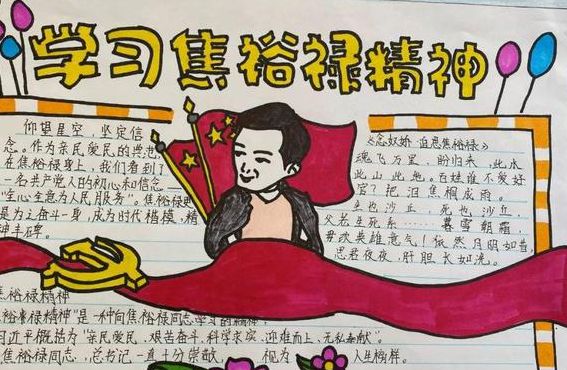 学习焦裕禄精神
仰望星空，坚定信
念。作为亲民爱民的典范
在焦裕禄身上，我们看到了
一名共产党人的初心和信念—
生心全意为人民服务"。焦裕禄
是为上奋斗一身，成为时代楷模、精
神丰碑。
《念奴娇 追思焦裕禄》
魂飞万里，盼归来，此水
此山此地。百姓谁不爱好
官？把泪焦桐成雨。
也沙丘，死也沙丘，
父老生死系……暮雪朝霜，
毋改英雄意气！依然月明如昔
思君夜夜，肝胆长如洗。
焦裕禄精神
裕禄精神"是一种向焦裕禄同志学习的精神，
习近平概括为"亲民爱民，艰苦奋斗，科学求实，迎难而上，无私奉献"。
焦裕禄同志，总书记一直十分崇敬， 视为 人生榜样。